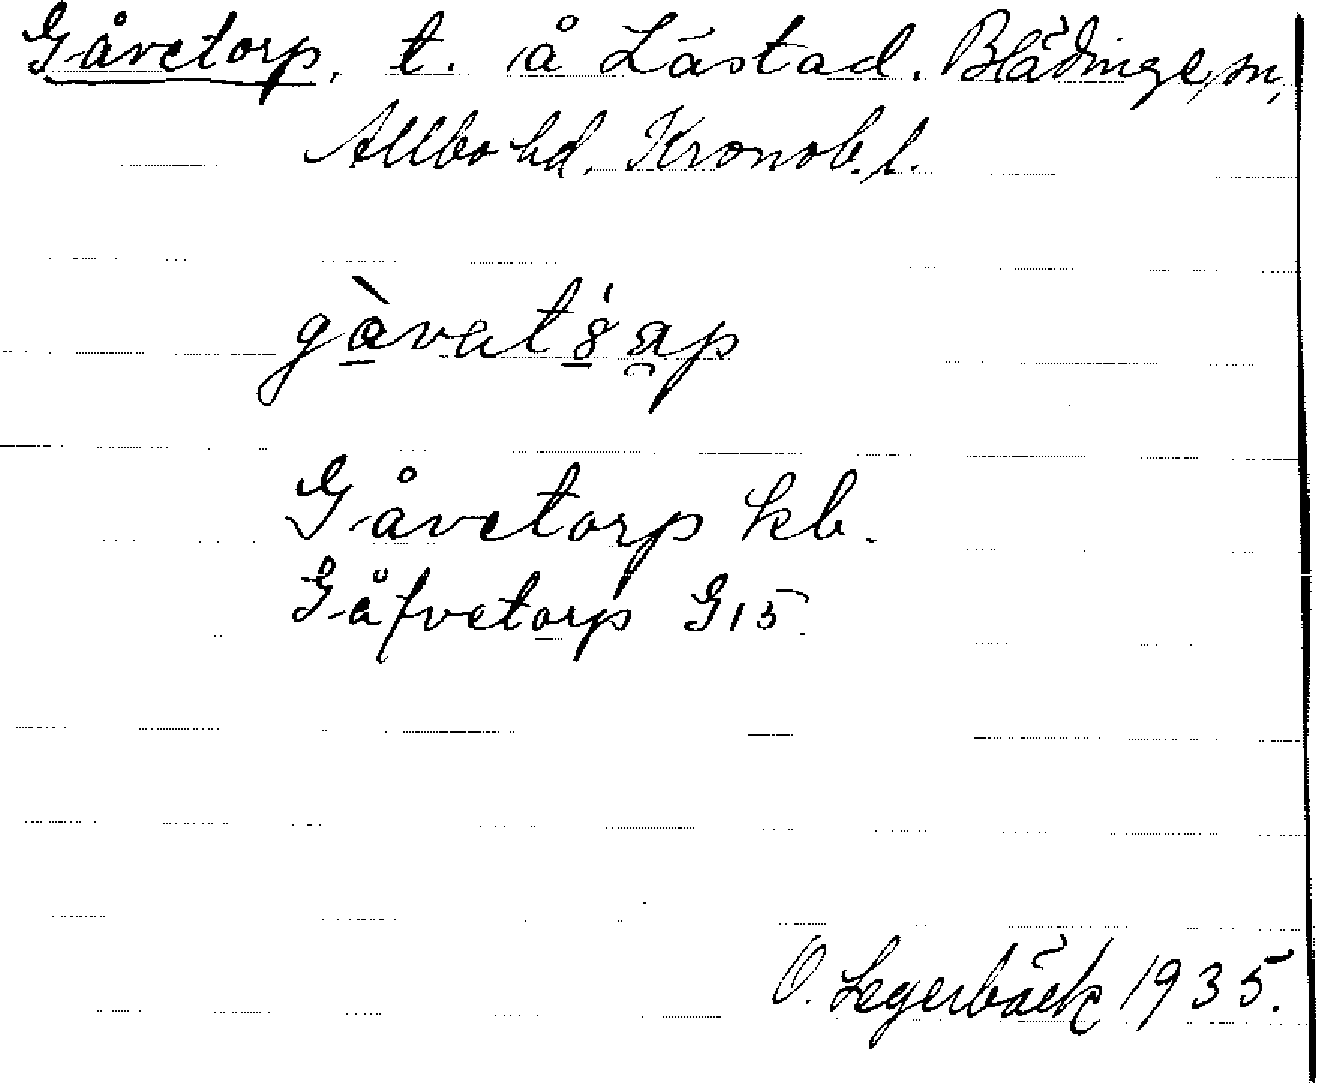 Gåvetorp, t. å Låstad. Blädinge sn,
Allbo hd. Kronob. l.
Gåvetorp kb.
Gåfvetorp G15
O. Legerbäck 1935.